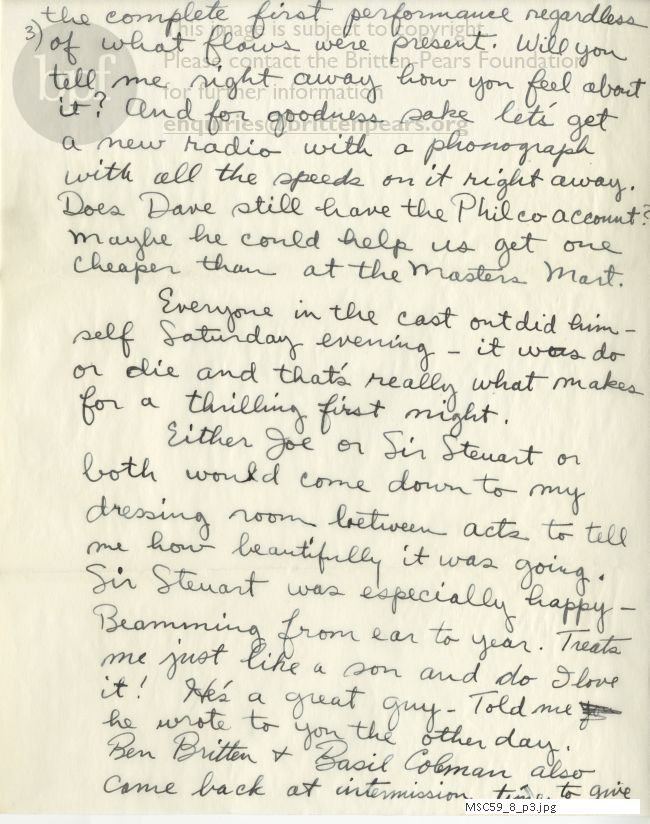 the complete first performance regardless
3) of what flaws were present. Will you
tell me right away how you feel about
it? And for goodness sake let's get
a new radio with a phonograph
with all the speeds on it right away.
Does Dave still have the Philco account?
Maybe he could help us get one
cheaper than at the Masters Mart.
Everyone in the cast outdid him-
self Saturday evening - it was do
or die and that's really what makes
for a thrilling first night.
Either Joe or Sir Steuart or
both would come down to my
dressing room between acts to tell
me how beautifully it was going.
Sir Steuart was especially happy -
Beamming from ear to year. Treats
me just like a son and do I love
it! He's a great guy - Told me
he wrote to you the other day.
Ben Britten & Basil Coleman also
came back at intermission time to give
this image is subject to copyright
Please contact the Britten-Pears Foundation
for further information
enquiries@brittenpears.org
bpf
MSC59_8_p3.jpg